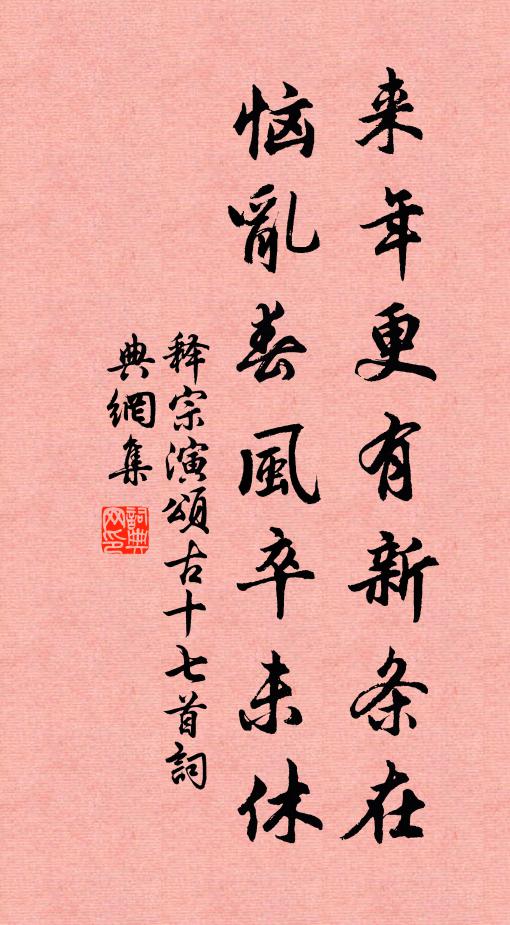 来年更有新条在
恼亂春風卒未休
释宗演頌古十七首詞
典網集
詞典
网印